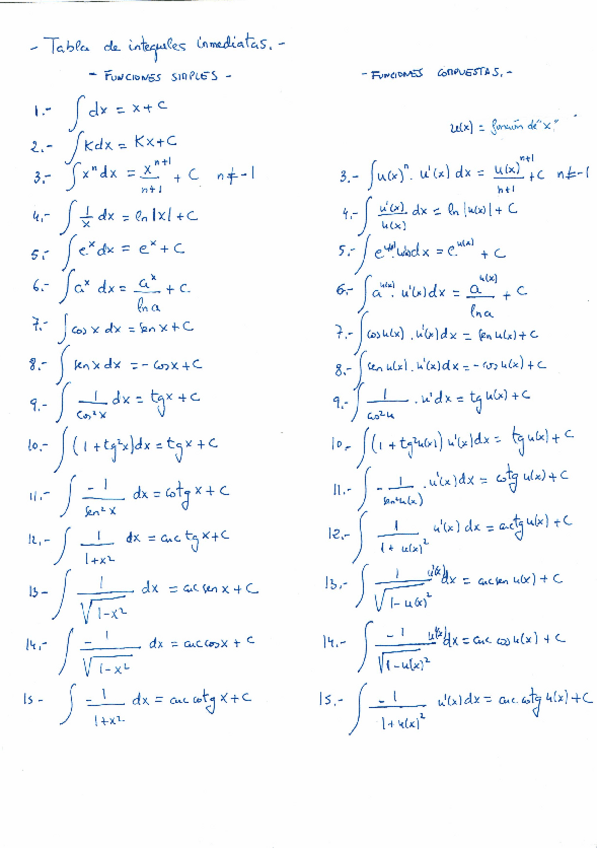 - Tabla de integrales inmediatas. -
- FUNCIONES SIMPLES -
- FUNCIONES COMPUESTAS. -
u(x) = función de "x"
1.- ∫ dx = x + C
2.- ∫ K dx = Kx + C
3.- ∫ xⁿ dx = xⁿ⁺¹/(n+1) + C n ≠ -1
4.- ∫ 1/x dx = ln |x| + C
5.- ∫ eˣ dx = eˣ + C
6.- ∫ aˣ dx = aˣ/ln a + C.
7.- ∫ cos x dx = sen x + C
8.- ∫ sen x dx = - cos x + C
9.- ∫ 1/cos²x dx = tg x + C
10.- ∫ (1 + tg²x) dx = tg x + C
11.- ∫ -1/sen²x dx = cotg x + C
12.- ∫ 1/(1+x²) dx = arc tg x + C
13- ∫ 1/√(1-x²) dx = arc sen x + C
14.- ∫ -1/√(1-x²) dx = arc cos x + C
15- ∫ -1/(1+x²) dx = arc cotg x + C
3.- ∫ u(x)ⁿ. u'(x) dx = u(x)ⁿ⁺¹/(n+1) + C n ≠ -1
4.- ∫ u'(x)/u(x) dx = ln |u(x)| + C
5.- ∫ e^u(x). u'(x) dx = e^u(x) + C
6.- ∫ a^u(x). u'(x) dx = a^u(x)/ln a + C
7.- ∫ cos u(x). u'(x) dx = sen u(x) + C
8.- ∫ sen u(x). u'(x) dx = - cos u(x) + C
9.- ∫ 1/cos²u . u' dx = tg u(x) + C
10.- ∫ (1 + tg²u(x)) u'(x) dx = tg u(x) + C
11.- ∫ - 1/sen²u(x) . u'(x) dx = cotg u(x) + C
12.- ∫ 1/(1 + u(x)²) u'(x) dx = arctg u(x) + C
13.- ∫ 1/√(1-u(x)²) u'(x) dx = arc sen u(x) + C
14.- ∫ -1/√(1-u(x)²) u'(x) dx = arc cos u(x) + C
15.- ∫ -1/(1+u(x)²) u'(x) dx = arc. cotg u(x) + C